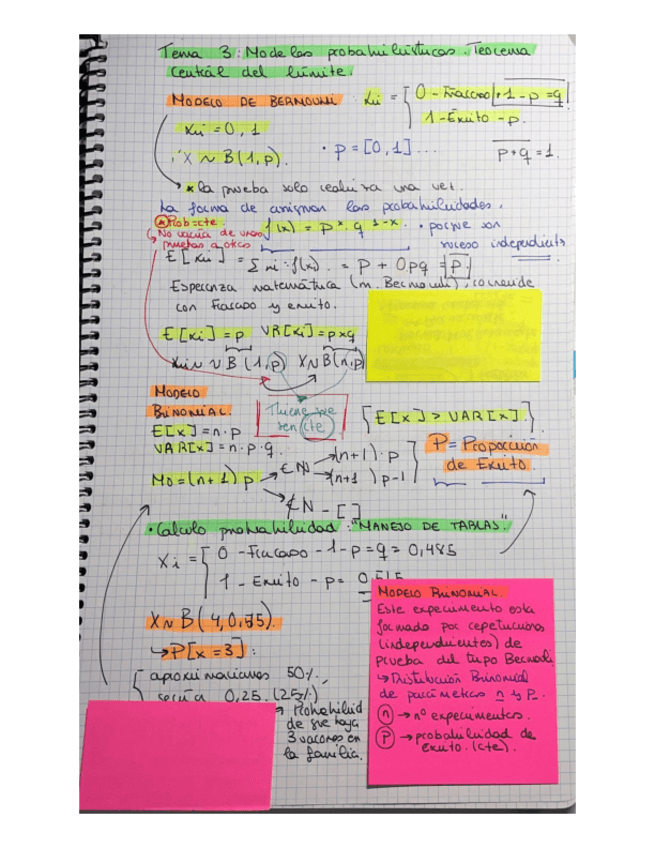 Tema 3: Modelos probabilísticos. Teorema
Central del límite.
MODELO DE BERNOULLI
Xi = 0 - Fracaso 1 - p = q
1 - Éxito - p.
Xi = 0, 1
X ~ B(1, p).
• p = [0, 1] ...
p + q = 1.
* la prueba solo realiza una vez.
La forma de asignar las probabilidades.
* Prob = cte
No varía de unas
pruebas a otras
f(x) = p^x · q^1-x
• porque son
suceso independiente
E[xi] = Σ xi · f(x) = p + 0.pq = p.
Esperanza matemática (m. Bernoulli), coincide
con Fracaso y éxito.
E[xi] = p VAR[xi] = p x q
Xi ~ B(1, p) X ~ B(n, p)
MODELO
BINOMIAL.
Tiene que
ser cte
E[x] > VAR[x].
E[x] = n · p
VAR[x] = n · p · q.
P = Proporción
de Éxito.
Mo = (n+1) p
∈ N
(n+1) · p
(n+1) p - 1
∉ N - [ ]
• Cálculo probabilidad: "MANEJO DE TABLAS".
Xi = 0 - Fracaso - 1 - p = q = 0,485
1 - Éxito - p = 0,515
X ~ B(4, 0,515).
P[x = 3]:
aproximaciones 50%.,
sería 0,25. (25%)
Probabilidad
de que haya
3 varones en
la familia.
MODELO BINOMIAL.
Este experimento está
formado por repeticiones
(independientes) de
prueba del tipo Bernoulli
Distribución Binomial
de parámetros n y P.
n → nº experimentos.
P → probabilidad de
éxito. (cte).